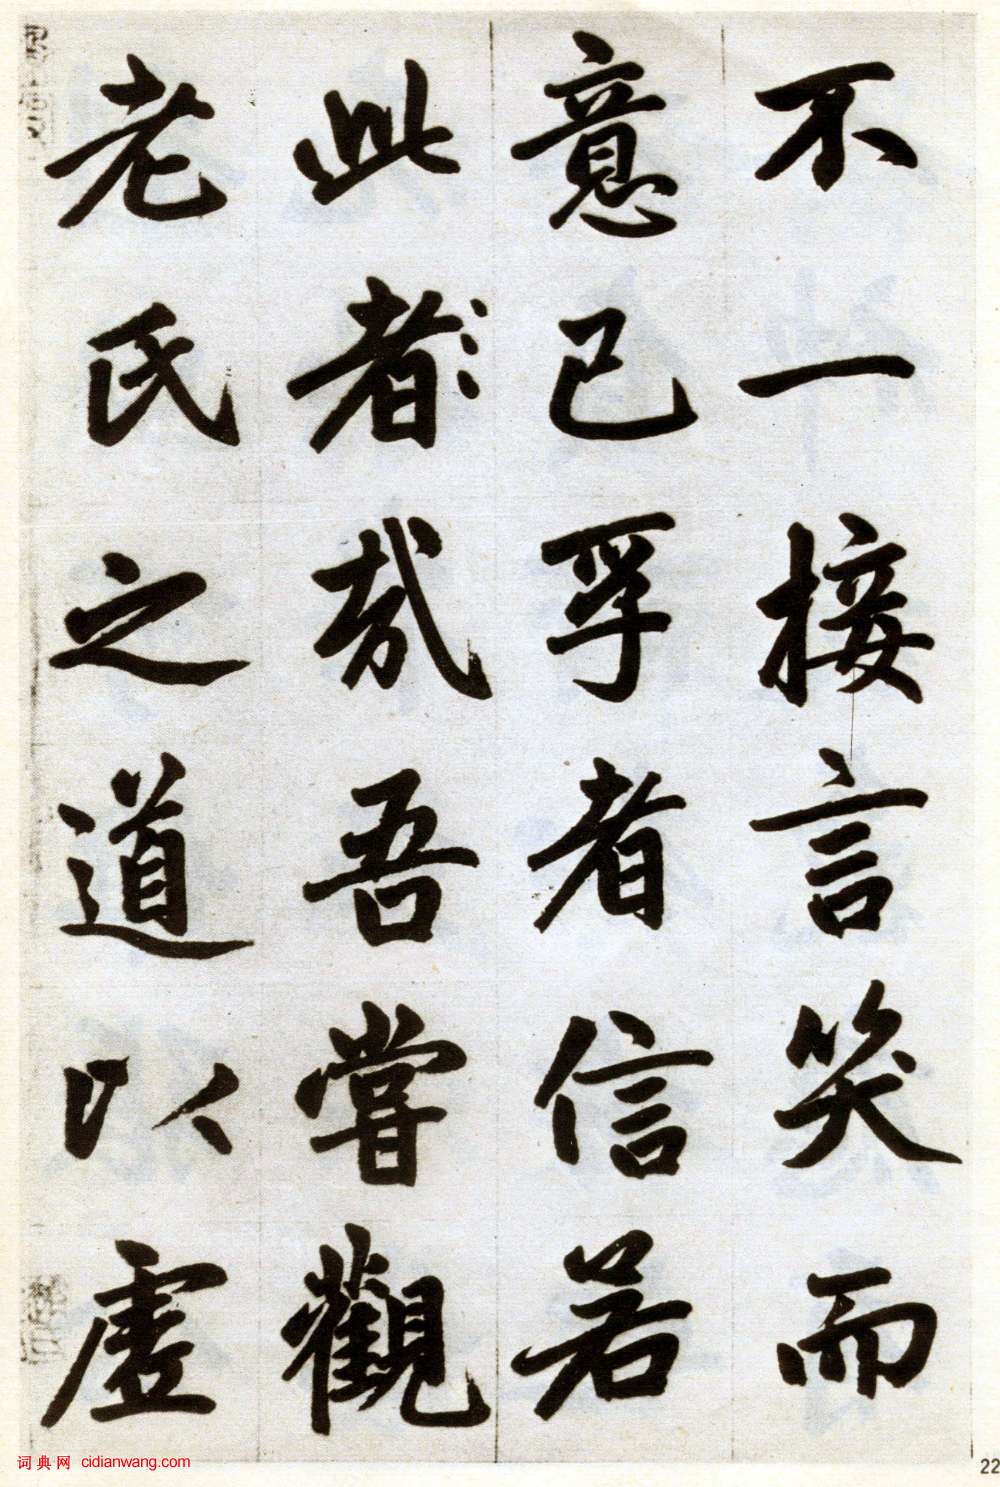 不一接言笑而
意已孚者信若
此者哉吾嘗觀
老氏之道以虛
词典网 cidianwang.com
22